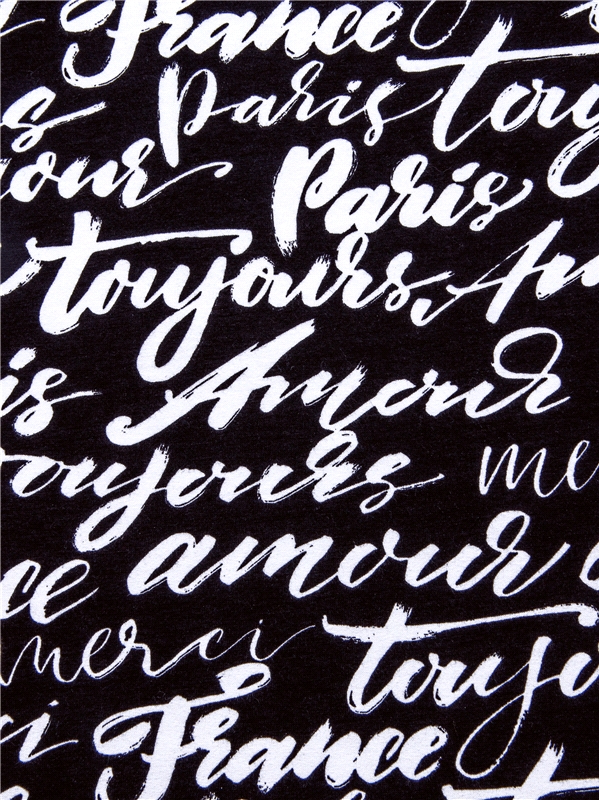 France
Paris touj
our Paris
toujours, Am
is Amour
toujours me
ce amour
merci toujo
ci France